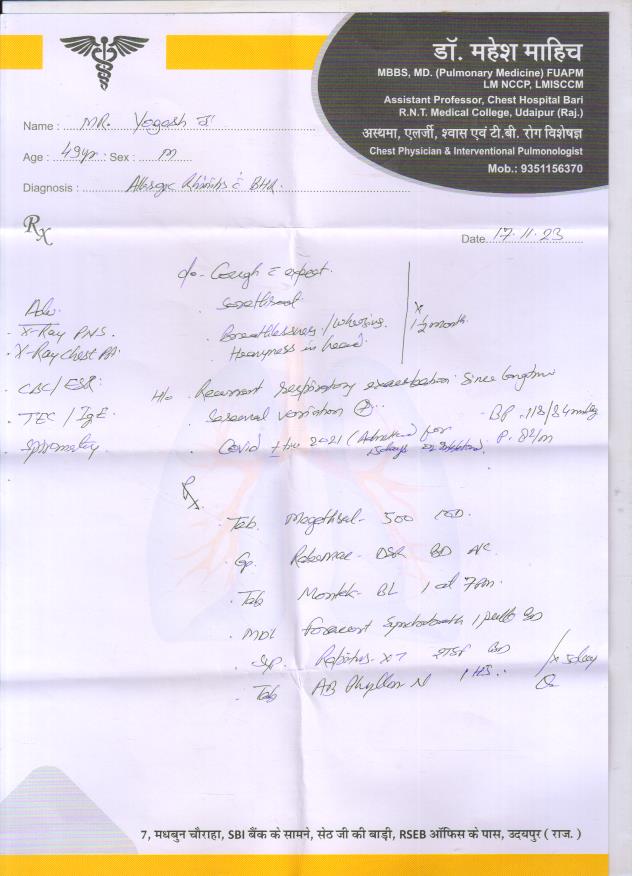 डॉ. महेश माहिच
MBBS, MD. (Pulmonary Medicine) FUAPM
LM NCCP, LMISCCM
Assistant Professor, Chest Hospital Bari
R.N.T. Medical College, Udaipur (Raj.)
अस्थमा, एलर्जी, श्वास एवं टी.बी. रोग विशेषज्ञ
Chest Physician & Interventional Pulmonologist
Mob.: 9351156370
Name : MR. Yogesh
Age : 49yr Sex : M
Diagnosis : Allergic Rhinitis c BHR.
Rx
Date 17.11.23
c/o - Cough c expect.
Sorethroat
Breathlessness / Wheezing
Heavyness in head
x 1 1/2 month
Adv.
- X-Ray PNS.
- X-Ray Chest PA
- CBC / ESR
- TEC / IgE
Spirometry
H/o Recurrent respiratory exacerbation since longtime
Seasonal variation +
Covid +ve 2021 (Admitted for
BP - 118/84 mmHg
P. 82/m
Rx
Tab. 500
Cap. DSR BD AC
Tab Montek BL 1 at 7pm.
MDI Foracort 1 puff BD
Syp. BD
Tab AB Phyllin N 1 HS.
x 5 day
7, मधुबन चौराहा, SBI बैंक के सामने, सेठ जी की बाड़ी, RSEB ऑफिस के पास, उदयपुर ( राज. )